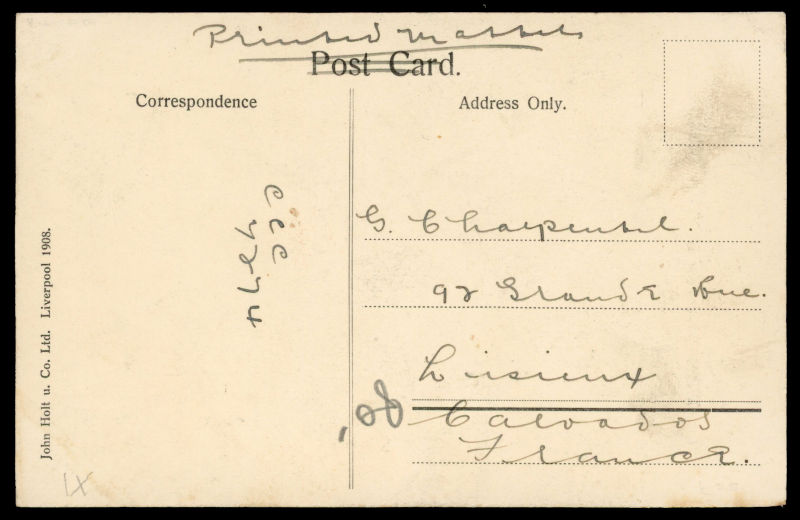 Printed Matter
Post Card.
Correspondence
Address Only.
CCC
4274
John Holt u. Co. Ltd. Liverpool 1908.
G. Charpentel.
92 Grande Rue.
Lisieux
Calvados
France.
IX